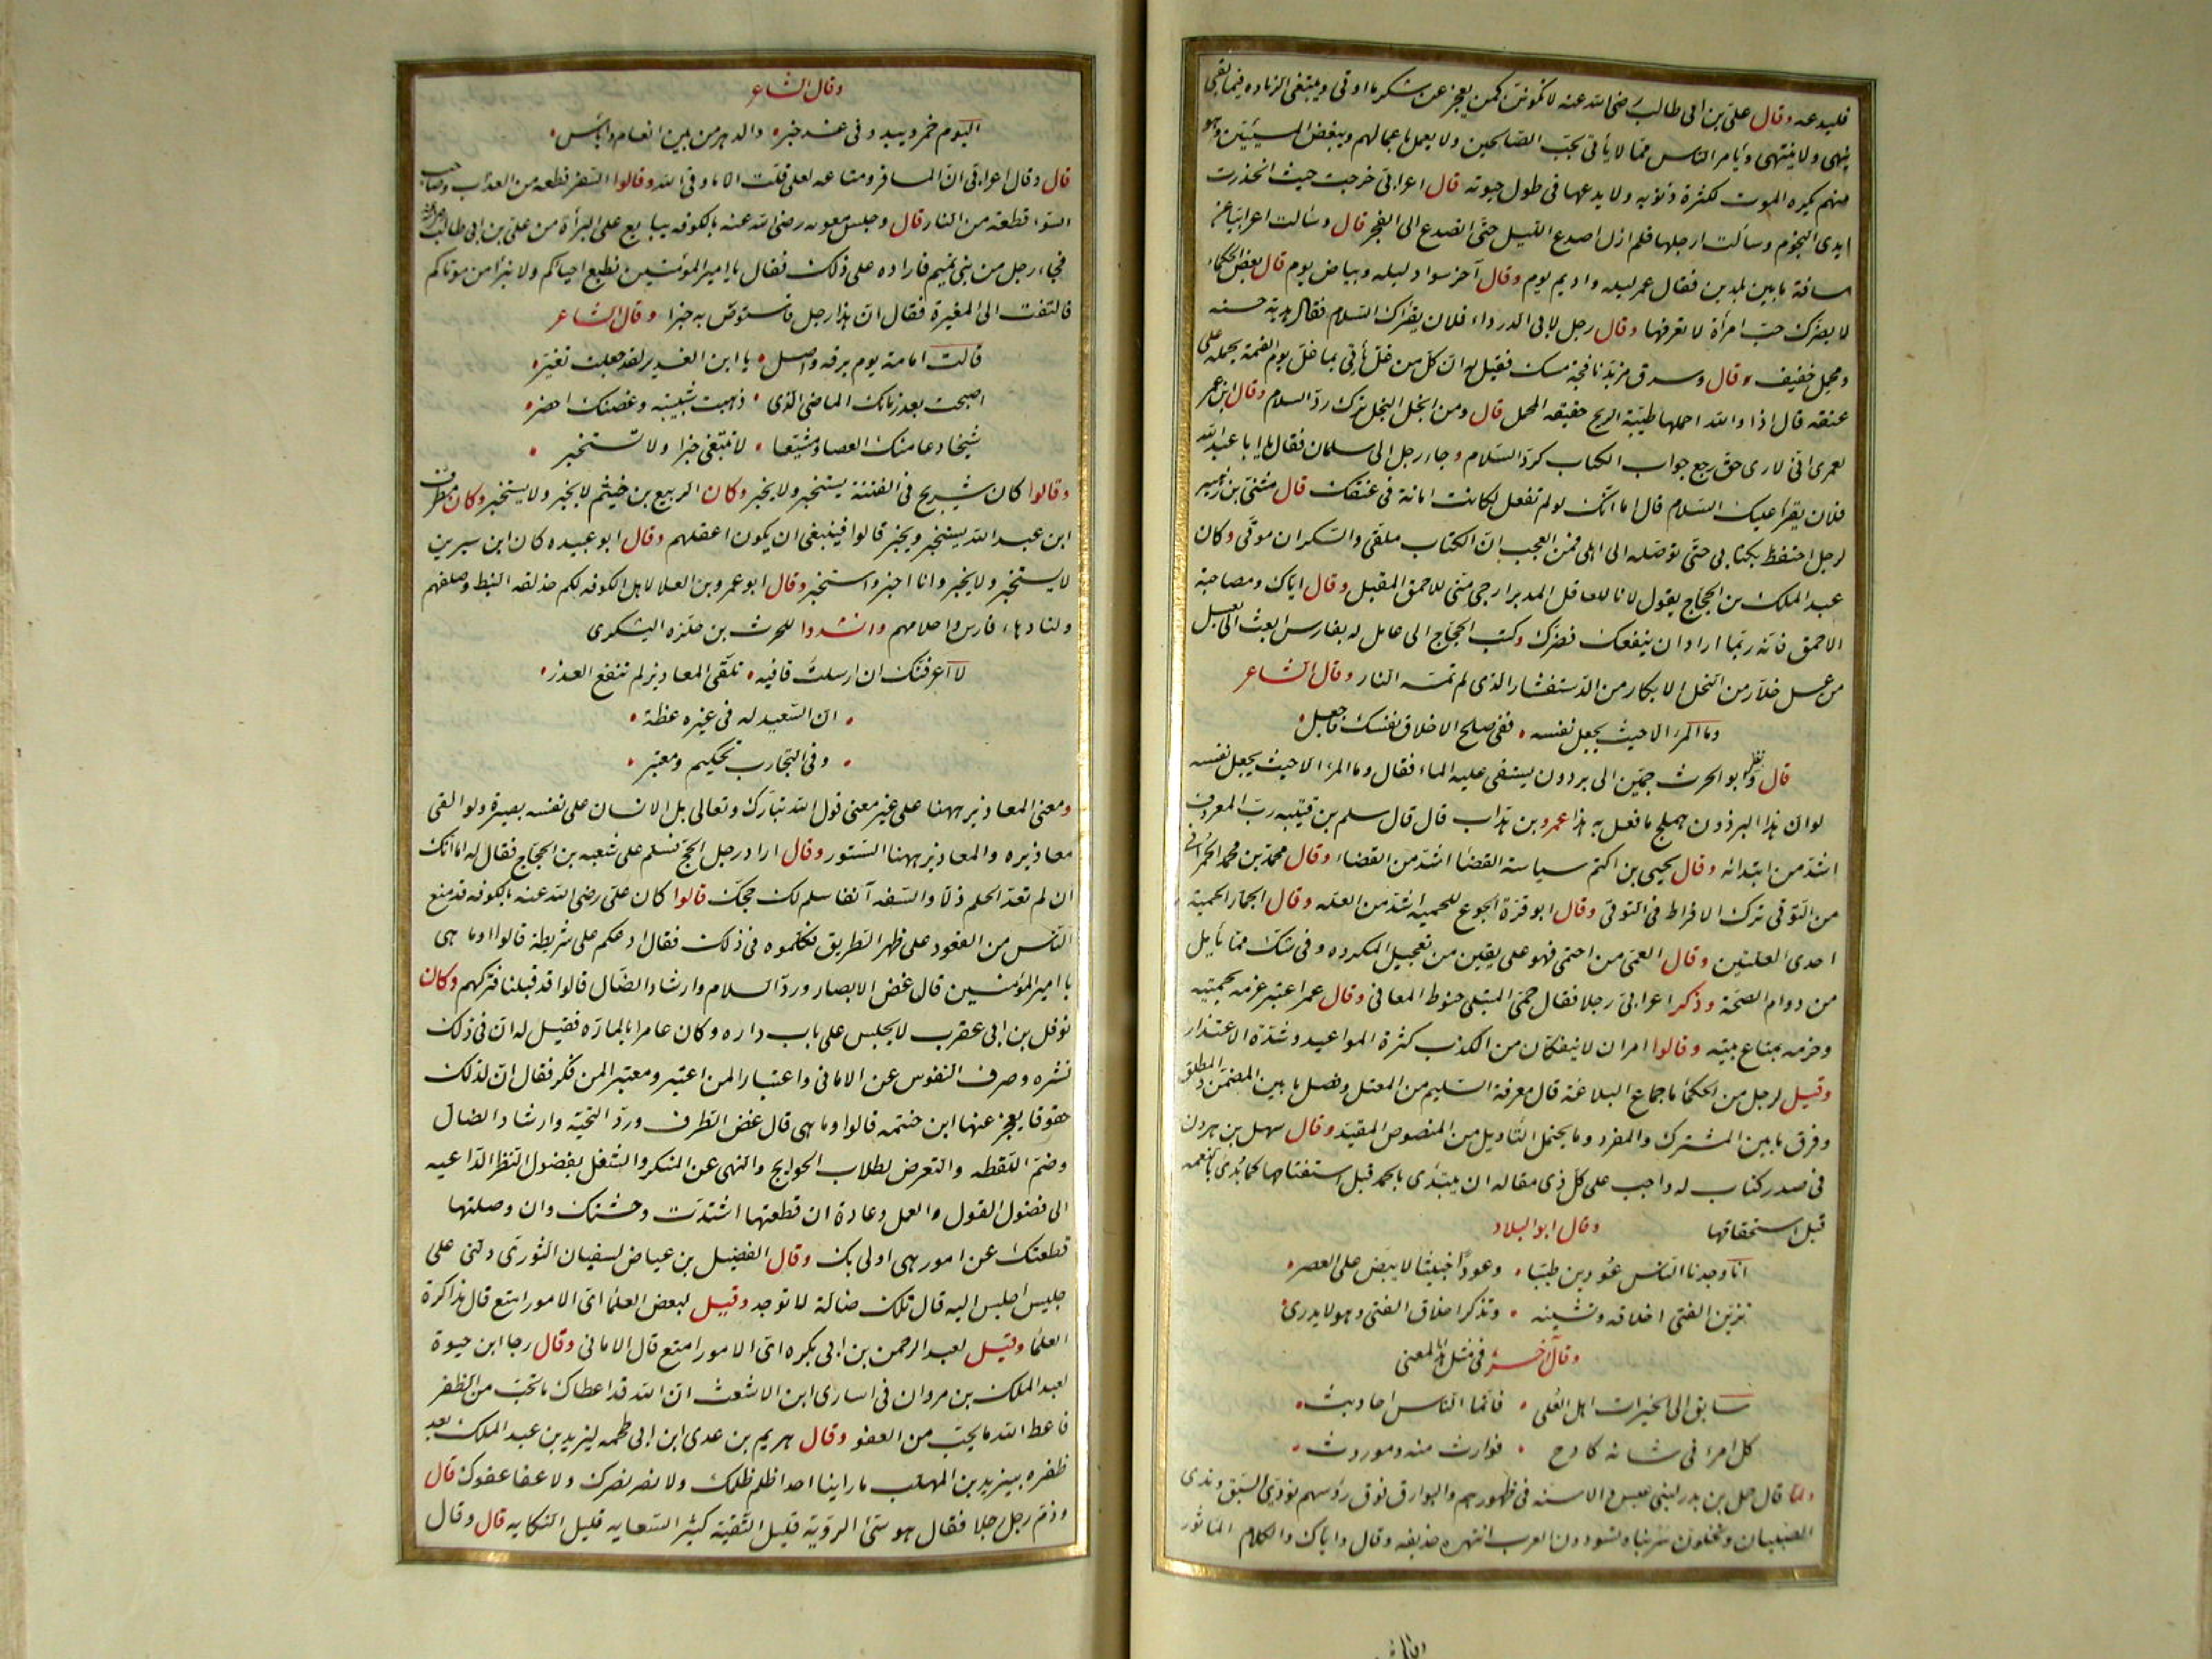 فليدعه وقال علي بن ابي طالب رضي الله عنه لا تكونن كمن يعجز عن شكر ما اوتي ويبتغي الزيادة فيما بقي
ينهى ولا ينتهى ويأمر الناس بما لا يأتي يحب الصالحين ولا يعمل باعمالهم ويبغض المسيئين وهو
منهم يكره الموت لكثرة ذنوبه ولا يدعها في طول حيوته قال اعرابي خرجت حيث انحدرت
ايدي النجوم وسألت ارجلها فلم ازل اصدع الليل حتى انصدع الى الفجر قال وسألت اعرابيا عن
مسافة ما بين بلدين فقال عمر ليله واديم يوم وقال آخر سواد ليله وبياض يوم قال بعض الحكماء
لا يضرك حب امرأة لا تعرفها وقال رجل لابي الدرداء فلان يقرئك السلام فقال هدية حسنه
ومحمل خفيف وقال وسرق مزبد نافجة مسك فقيل له ان كل من غل يأتي بما غل يوم القيمة يحمله على
عنقه قال اذا والله احملها طيبة الريح خفيفه المحمل قال ومن ابخل البخل ترك رد السلام وقال ابن عمر
لعمري اني لارى حق رجع جواب الكتاب كرد السلام وجاء رجل الى سلمان فقال يا ابا عبد الله
فلان يقرأ عليك السلام قال اما انك لو لم تفعل لكانت امانة في عنقك قال مثنى بن زهير
لرجل احتفظ بكتابي حتى توصله الى اهلي فمن العجب ان الكتاب ملقى والسكران موقى وكان
عبد الملك بن الحجاج يقول لانا للعاقل المدبر ارجى مني للاحمق المقبل وقال اياك ومصاحبة
الاحمق فانه ربما اراد ان ينفعك فضرك وكتب الحجاج الى عامل له بفارس ابعث الي بعسل
من عسل خلار من النحل الابكار من الدستفشار الذي لم تمسه النار وقال الشاعر
وما المرء الا حيث يجعل نفسه ففي صالح الاخلاق نفسك فاجعل
قال ونظر ابو الحرث جمين الى برذون يستقى عليه الماء فقال وما المرء الا حيث يجعل نفسه
لو ان هذا البرذون هملج ما فعل به هذا عمرو بن هداب قال قال سلم بن قتيبه رب المعروف
اشد من ابتدائه وقال يحيى بن اكثم سياسة القضاء اشد من القضاء وقال محمد بن محمد الحمراني
من التوقي ترك الافراط في التوقي وقال ابو قرة الجوع للحميه اشد من العله وقال الجماز الحمية
احدى العلتين وقال العمي من احتمى فهو على يقين من تعجيل المكروه وفي شك مما يأمل
من دوام الصحة وذكر اعرابي رجلا فقال حمى المبتلى حنوط المعافى وقال عمر اعتبر عزمه بحميته
وحزمه بمتاع بيته وقالوا امران لا ينفكان من الكذب كثرة المواعيد وشدة الاعتذار
وقيل لرجل من الحكماء ما جماع البلاغة قال معرفة السليم من المعتل وفصل ما بين المضمن والمطلق
وفرق ما بين المشترك والمفرد وما يحتمل التأويل من المنصوص المقيد وقال سهل بن هرون
في صدر كتاب له واجب على كل ذي مقاله ان يبتدئ بالحمد قبل استفتاحها كما بدئ بالنعمه
قبل استحقاقها وقال ابو البلاد
انا وجدنا الناس عودين طيبا وعودا خبيثا لا يبض على العصر
تزين الفتى اخلاقه وتشينه وتذكر اخلاق الفتى وهو لا يدري
وقال آخر في مثل هذا المعنى
سابق الى الخيرات اهل العلى فانما الناس احاديث
كل امرء في شانه كادح فوارث منه وموروث
ولما قال حمل بن بدر لبني عبس والاسنه في ظهورهم والبوارق فوق رؤسهم نؤدي السبق وندي
الصبيان وتخلون سربنا وتسودون العرب انتهره حذيفه وقال واياك والكلام المأثور
وقال الشاعر
اليوم خمر ويبدو في غد خبر والدهر من بين انعام واباس
قال وقال اعرابي ان المسافر ومتاعه لعلى قلت الا ما وقى الله وقالوا السفر قطعه من العذاب وصاحب
السوء قطعة من النار قال وجلس معويه رضي الله عنه بالكوفه يبايع على البرأة من علي بن ابي طالب
فجاء رجل من بني تميم فاراده على ذلك فقال يا امير المؤمنين نطيع احياكم ولا نبرأ من موتاكم
فالتفت الى المغيرة فقال ان هذا رجل فاستوص به خيرا وقال الشاعر
قالت امامة يوم برقه واصل يا ابن الغدير لقد جعلت تغير
اصبحت بعد زمانك الماضي الذي ذهبت شبيبته وغصنك اخضر
شيخا دعامتك العصا ومشيعا لا تبتغي خبرا ولا تستخبر
وقالوا كان شريح في الفتنة يستخبر ولا يخبر وكان الربيع بن خيثم لا يخبر ولا يستخبر وكان مطرف
ابن عبد الله يستخبر ويخبر قالوا فينبغي ان يكون اعقلهم وقال ابو عبيده كان ابن سيرين
لا يستخبر ولا يخبر وانا اخبر واستخبر وقال ابو عمرو بن العلا لاهل الكوفه لكم حذلقه النبط وصلفهم
ولنا دهاء فارس واحلامهم وانشدوا للحرث بن حلزه اليشكري
لا اعرفنك ان ارسلت قافيه تلقي المعاذير لم تنفع العذر
ان السعيد له في غيره عظة
وفي التجارب تحكيم ومعتبر
ومعنى المعاذير ههنا على غير معنى قول الله تبارك وتعالى بل الانسان على نفسه بصيرة ولو القى
معاذيره والمعاذير ههنا الستور وقال اراد رجل الحج فسلم على شعبه بن الحجاج فقال له اما انك
ان لم تعد الحلم ذلا والسفه آنفا سلم لك حجك قالوا كان علي رضي الله عنه بالكوفه قد منع
الناس من القعود على ظهر الطريق فكلموه في ذلك فقال ادعكم على شريطة قالوا وما هي
يا امير المؤمنين قال غض الابصار ورد السلام وارشاد الضال قالوا قد قبلنا فتركهم وكان
نوفل بن ابي عقرب لا يجلس على باب داره وكان عامرا بالمارة فقيل له ان في ذلك
نشره وصرف النفوس عن الاماني واعتبارا لمن اعتبر ومعتبرا لمن فكر فقال ان لذلك
حقوقا يعجز عنها ابن خيثمه قالوا وما هي قال غض الطرف ورد التحية وارشاد الضال
وضم اللقطه والتعرض لطلاب الحوايج والنهي عن المنكر والشغل بفضول النظر الداعيه
الى فضول القول والعمل وعادة ان قطعتها اشتدت وحشتك وان وصلتها
قطعتك عن امور هي اولى بك وقال الفضيل بن عياض لسفيان الثوري دلني على
جليس اجلس اليه قال تلك ضالة لا توجد وقيل لبعض العلماء اي الامور امتع قال مذاكرة
العلماء وقيل لعبد الرحمن بن ابي بكره اي الامور امتع قال الاماني وقال رجا ابن حيوة
لعبد الملك بن مروان في اسارى ابن الاشعث ان الله قد اعطاك ما تحب من الظفر
فاعط الله ما يحب من العفو وقال هريم بن عدي ابن ابي طحمه ليزيد بن عبد الملك بعد
ظفره بيزيد بن المهلب ما راينا احدا ظلم ظلمك ولا نصر نصرك ولا عفا عفوك قال
وذم رجل رجلا فقال هو سيئ الروية قليل التقية كثير السعايه قليل النكايه قال وقال